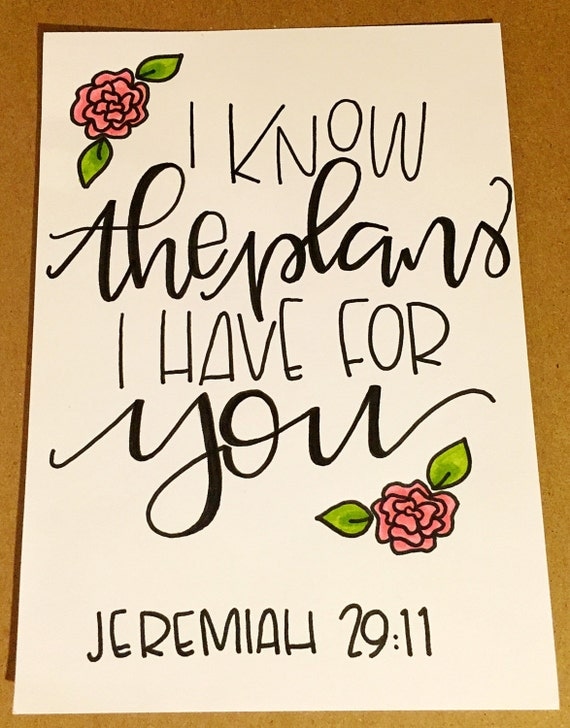 I KNOW
the plans
I HAVE FOR
you
JEREMIAH 29:11